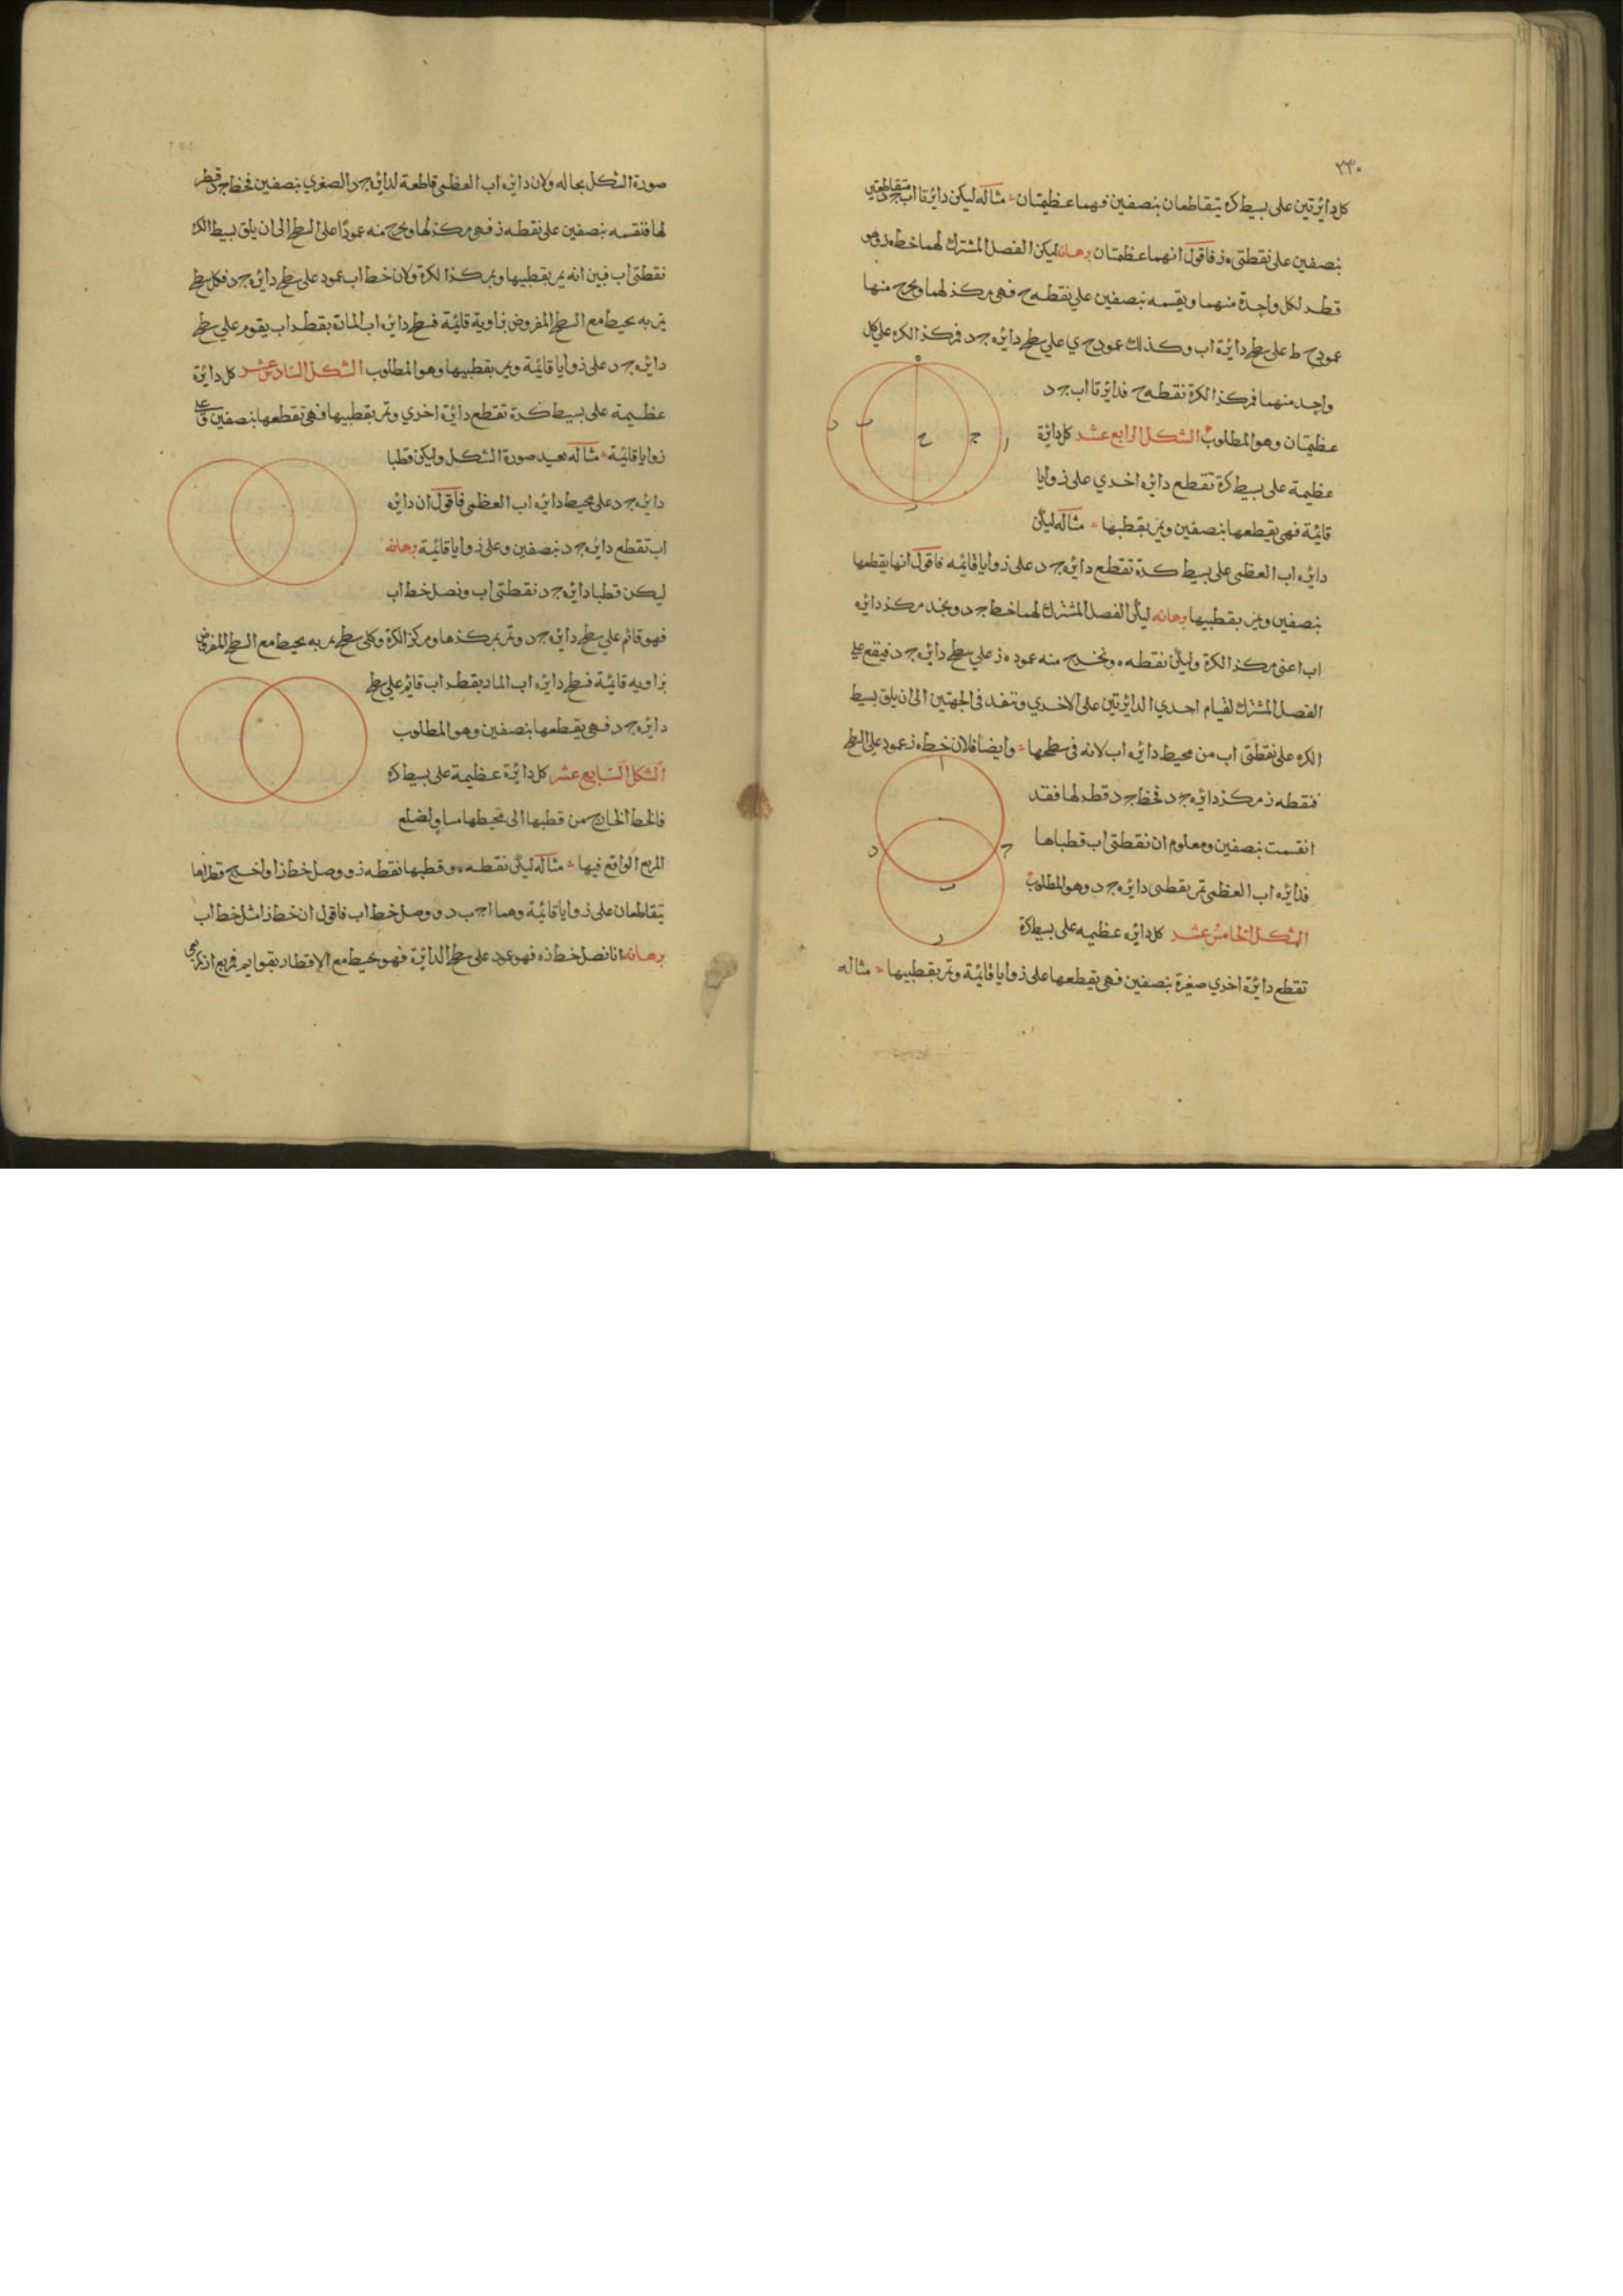 ٢٣٠
كل دائرتين على بسيط كرة يتقاطعان بنصفين فهما عظيمتان مثاله ليكن دائرتا اب جد متقاطعتين
بنصفين على نقطتي ه ز فاقول انهما عظيمتان برهانه ليكن الفصل المشترك لهما خط ه ز وهو
قطر لكل واحدة منهما ويقسمه بنصفين على نقطه ح فهى مركز لهما ويخرج منها
عمود ح ط على سطح دائرة اب وكذلك عمود ح ي على سطح دائره ج د فمركز الكره على كل
واحد منهما فمركز الكرة نقطه ح فدائرتا اب ج د
عظيمتان وهو المطلوب الشكل الرابع عشر كل دائرة
عظيمة على بسيط كرة تقطع دائره اخري على زوايا
قائمة فهى يقطعها بنصفين ويمر بقطبها مثاله ليكن
دائره اب العظمى على بسيط كرة تقطع دائره ج د على زوايا قائمه فاقول انها يقطعها
بنصفين ويمر بقطبيها برهانه ليكن الفصل المشترك لهما خط ج د ونجد مركز دائره
اب اعنى مركز الكرة وليكن نقطه ه ونخرج منه عمود ه ز على سطح دائره ج د فيقع على
الفصل المشترك لقيام احدي الدائرتين على الاخري وتنفد فى الجهتين الى ان يلق بسيط
الكره على نقطتى اب من محيط دائره اب لانه فى سطحها وايضا فلان خط ه ز عمود على السطح
فنقطه ز مركز دائره ج د فخط ج د قطر لها فقد
انقسمت بنصفين ومعلوم ان نقطتى اب قطباها
فدائره اب العظمى تمر بقطبى دائره ج د وهو المطلوب
الشكل الخامس عشر كل دائره عظيمه على بسيط كرة
تقطع دائرة اخري صغيرة بنصفين فهى يقطعها على زوايا قائمة وتمر بقطبيها مثاله
د ب ح ج ا
ا
د ج
ب
صورة الشكل بحاله ولان دائره اب العظمى قاطعة لدائره ج د الصغري بنصفين فخط ج د قطر
لها فنقسمه بنصفين على نقطه ز فهى مركز لها ويخرج منه عمودا على السطح الى ان يلق بسيط الكره
نقطتى اب فبين انه يمر بقطبيها وبمركز الكرة ولان خط اب عمود على سطح دائره ج د فكل سطح
يمر به يحيط مع السطح المفروض بزاوية قائمة فسطح دائره اب المارة بقطر اب يقوم على سطح
دائره ج د على زوايا قائمة ويمر بقطبيها وهو المطلوب الشكل السادس عشر كل دائرة
عظيمة على بسيط كرة تقطع دائرة اخري وتمر بقطبيها فهى تقطعها بنصفين وعلى
زوايا قائمة مثاله نعيد صورة الشكل وليكن قطبا
دائره ج د على محيط دائره اب العظمى فاقول ان دائره
اب تقطع دائره ج د بنصفين وعلى زوايا قائمة برهانه
ليكن قطبا دائره ج د نقطتى اب ونصل خط اب
فهو قائم على سطح دائره ج د وتمر بمركزها ومركز الكرة وكل سطح يمر به يحيط مع السطح المفروض
بزاويه قائمة فسطح دائره اب المار بقطر اب قائم على سطح
دائره ج د فهى يقطعها بنصفين وهو المطلوب
الشكل السابع عشر كل دائرة عظيمة على بسيط كرة
فالخط الخارج من قطبها الى محيطها مساو لضلع
المربع الواقع فيها مثاله ليكن نقطه ه وقطبها نقطه ز ووصل خط زا واخرج قطراها
يتقاطعان على زوايا قائمة وهما اج ب د ووصل خط اب فاقول ان خط زا مثل خط اب
برهانه انا نصل خط زه فهو عمود على سطح الدائرة فهو يحيط مع الاقطار بقوايم فمربع از